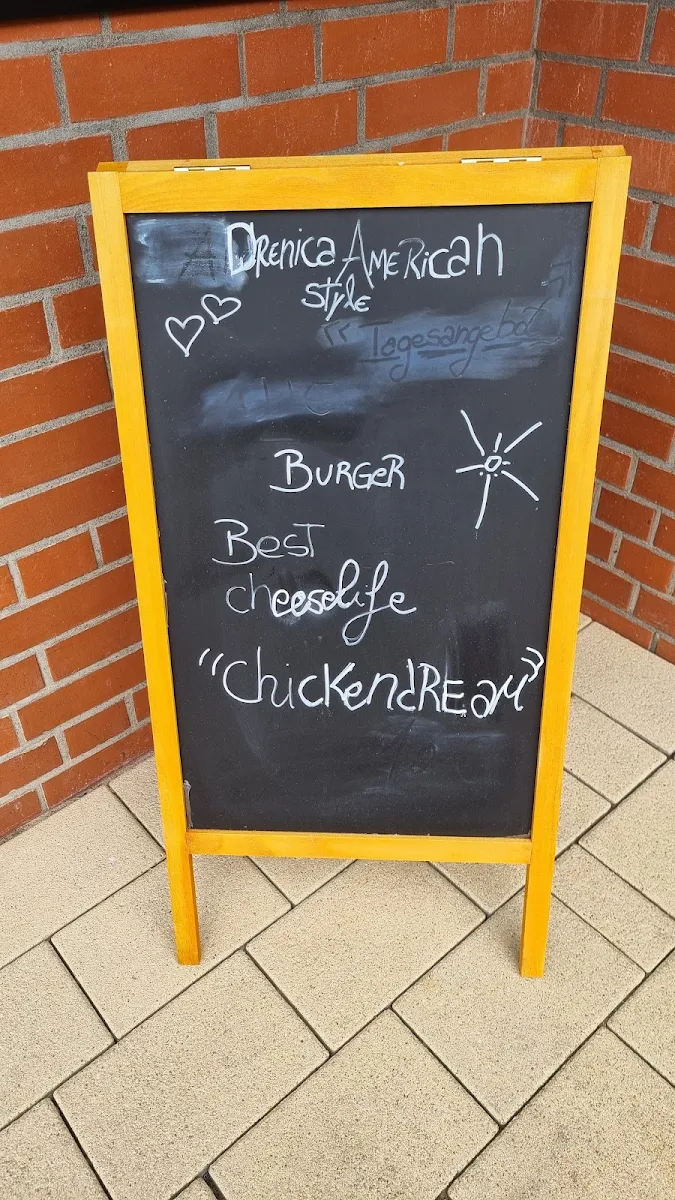 Drenica American
style
"Tagesangebot"
Burger
Best
cheeselife
"ChickendREam"